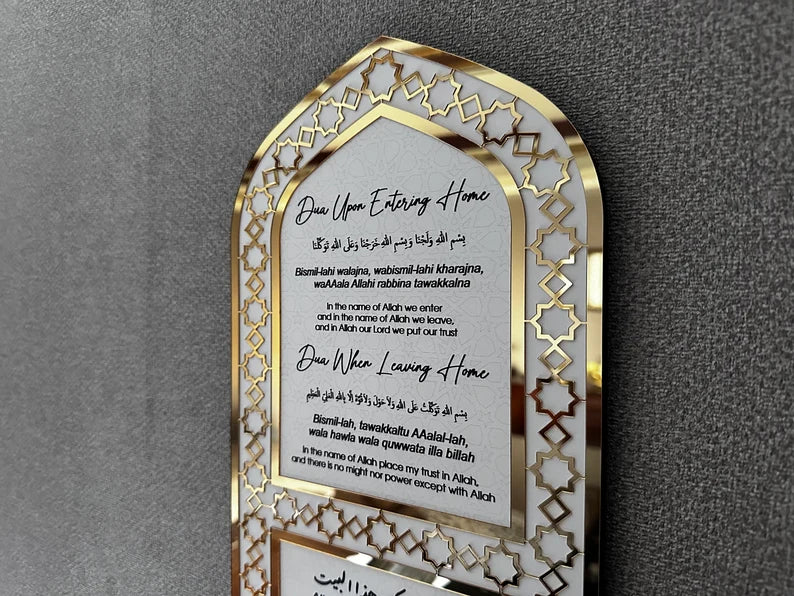 Dua Upon Entering Home
بِسْمِ اللهِ وَلَجْنَا وَبِسْمِ اللهِ خَرَجْنَا وَعَلَى اللهِ تَوَكَّلْنَا
Bismil-lahi walajna, wabismil-lahi kharajna,
waAAala Allahi rabbina tawakkalna
In the name of Allah we enter
and in the name of Allah we leave,
and in Allah our Lord we put our trust
Dua When Leaving Home
بِسْمِ اللهِ تَوَكَّلْتُ عَلَى اللهِ وَلَا حَوْلَ وَلَا قُوَّةَ إِلَّا بِاللهِ الْعَلِيِّ الْعَظِيمِ
Bismil-lah, tawakkaltu AAalal-lah,
wala hawla wala quwwata illa billah
In the name of Allah place my trust in Allah,
and there is no might nor power except with Allah
هذا البيت